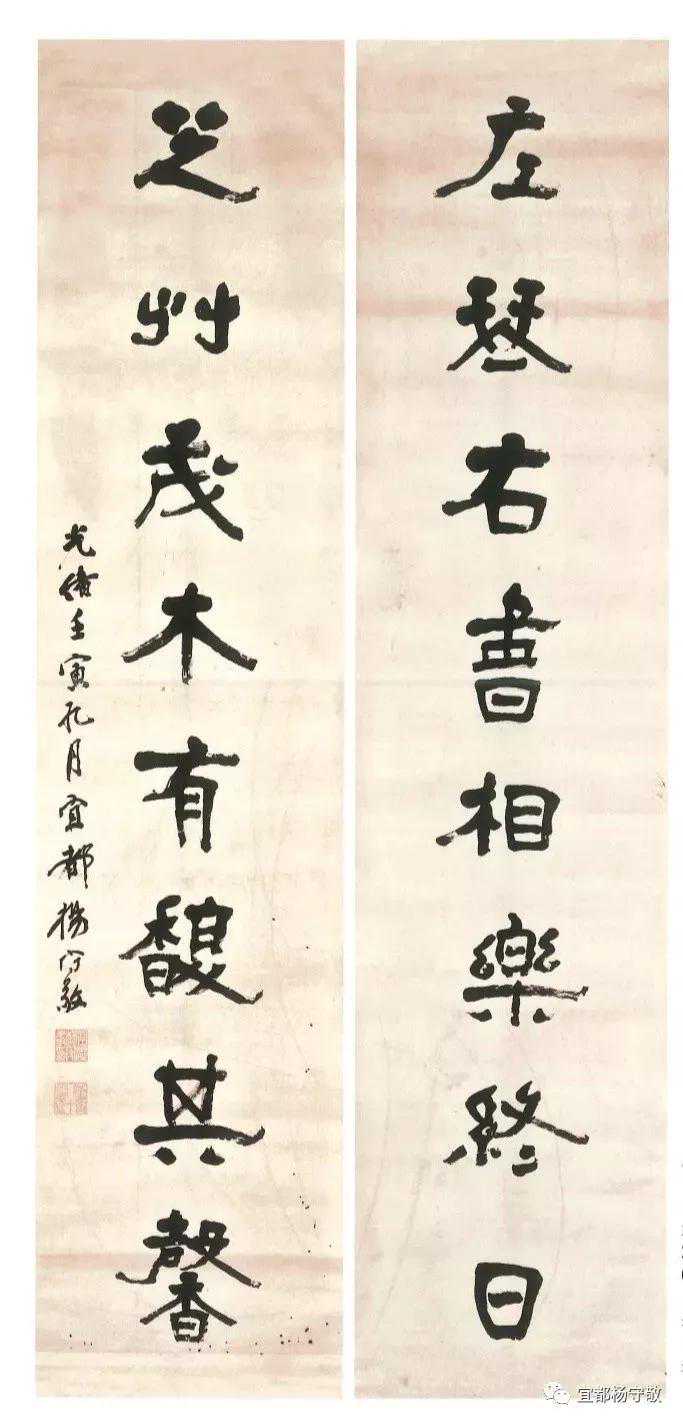 左琴右書相樂終日
芝艸茂木有馥其馨
光緒壬寅九月宜都楊守敬
宜都杨守敬